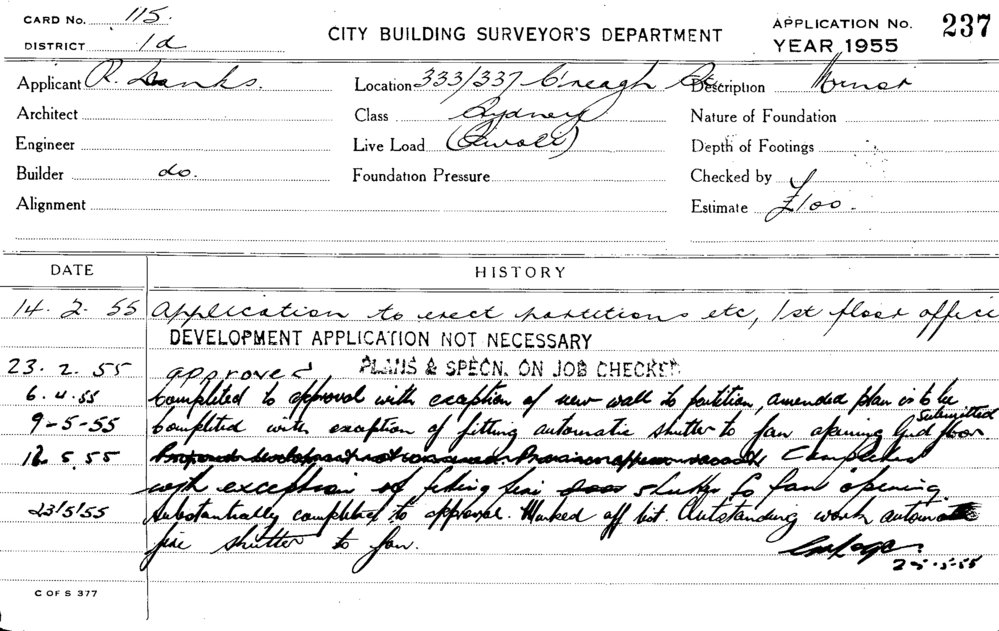 CARD No. 115.
DISTRICT 1d
CITY BUILDING SURVEYOR'S DEPARTMENT
APPLICATION No. 237
YEAR 1955
Applicant R. Danks. Location 333/337 C'reagh Description
Architect Class Sydney Nature of Foundation
Engineer Live Load Depth of Footings
Builder do. Foundation Pressure Checked by
Alignment Estimate £100.
DATE HISTORY
14.2.55 Application to erect partitions etc, 1st floor office
DEVELOPMENT APPLICATION NOT NECESSARY
23.2.55 approved PLANS & SPECN. ON JOB CHECKED
6.4.55 Completed to approval with exception of new wall to partition, amended plan is to be submitted
9-5-55 Completed with exception of fitting automatic shutter to fan opening Gnd floor
12.5.55 Completed
with exception of fitting fire shutter to fan opening
23/5/55 Substantially completed to approval. Marked off list. Outstanding work automatic
fire shutter to fan.
25.5.55
C OF S 377